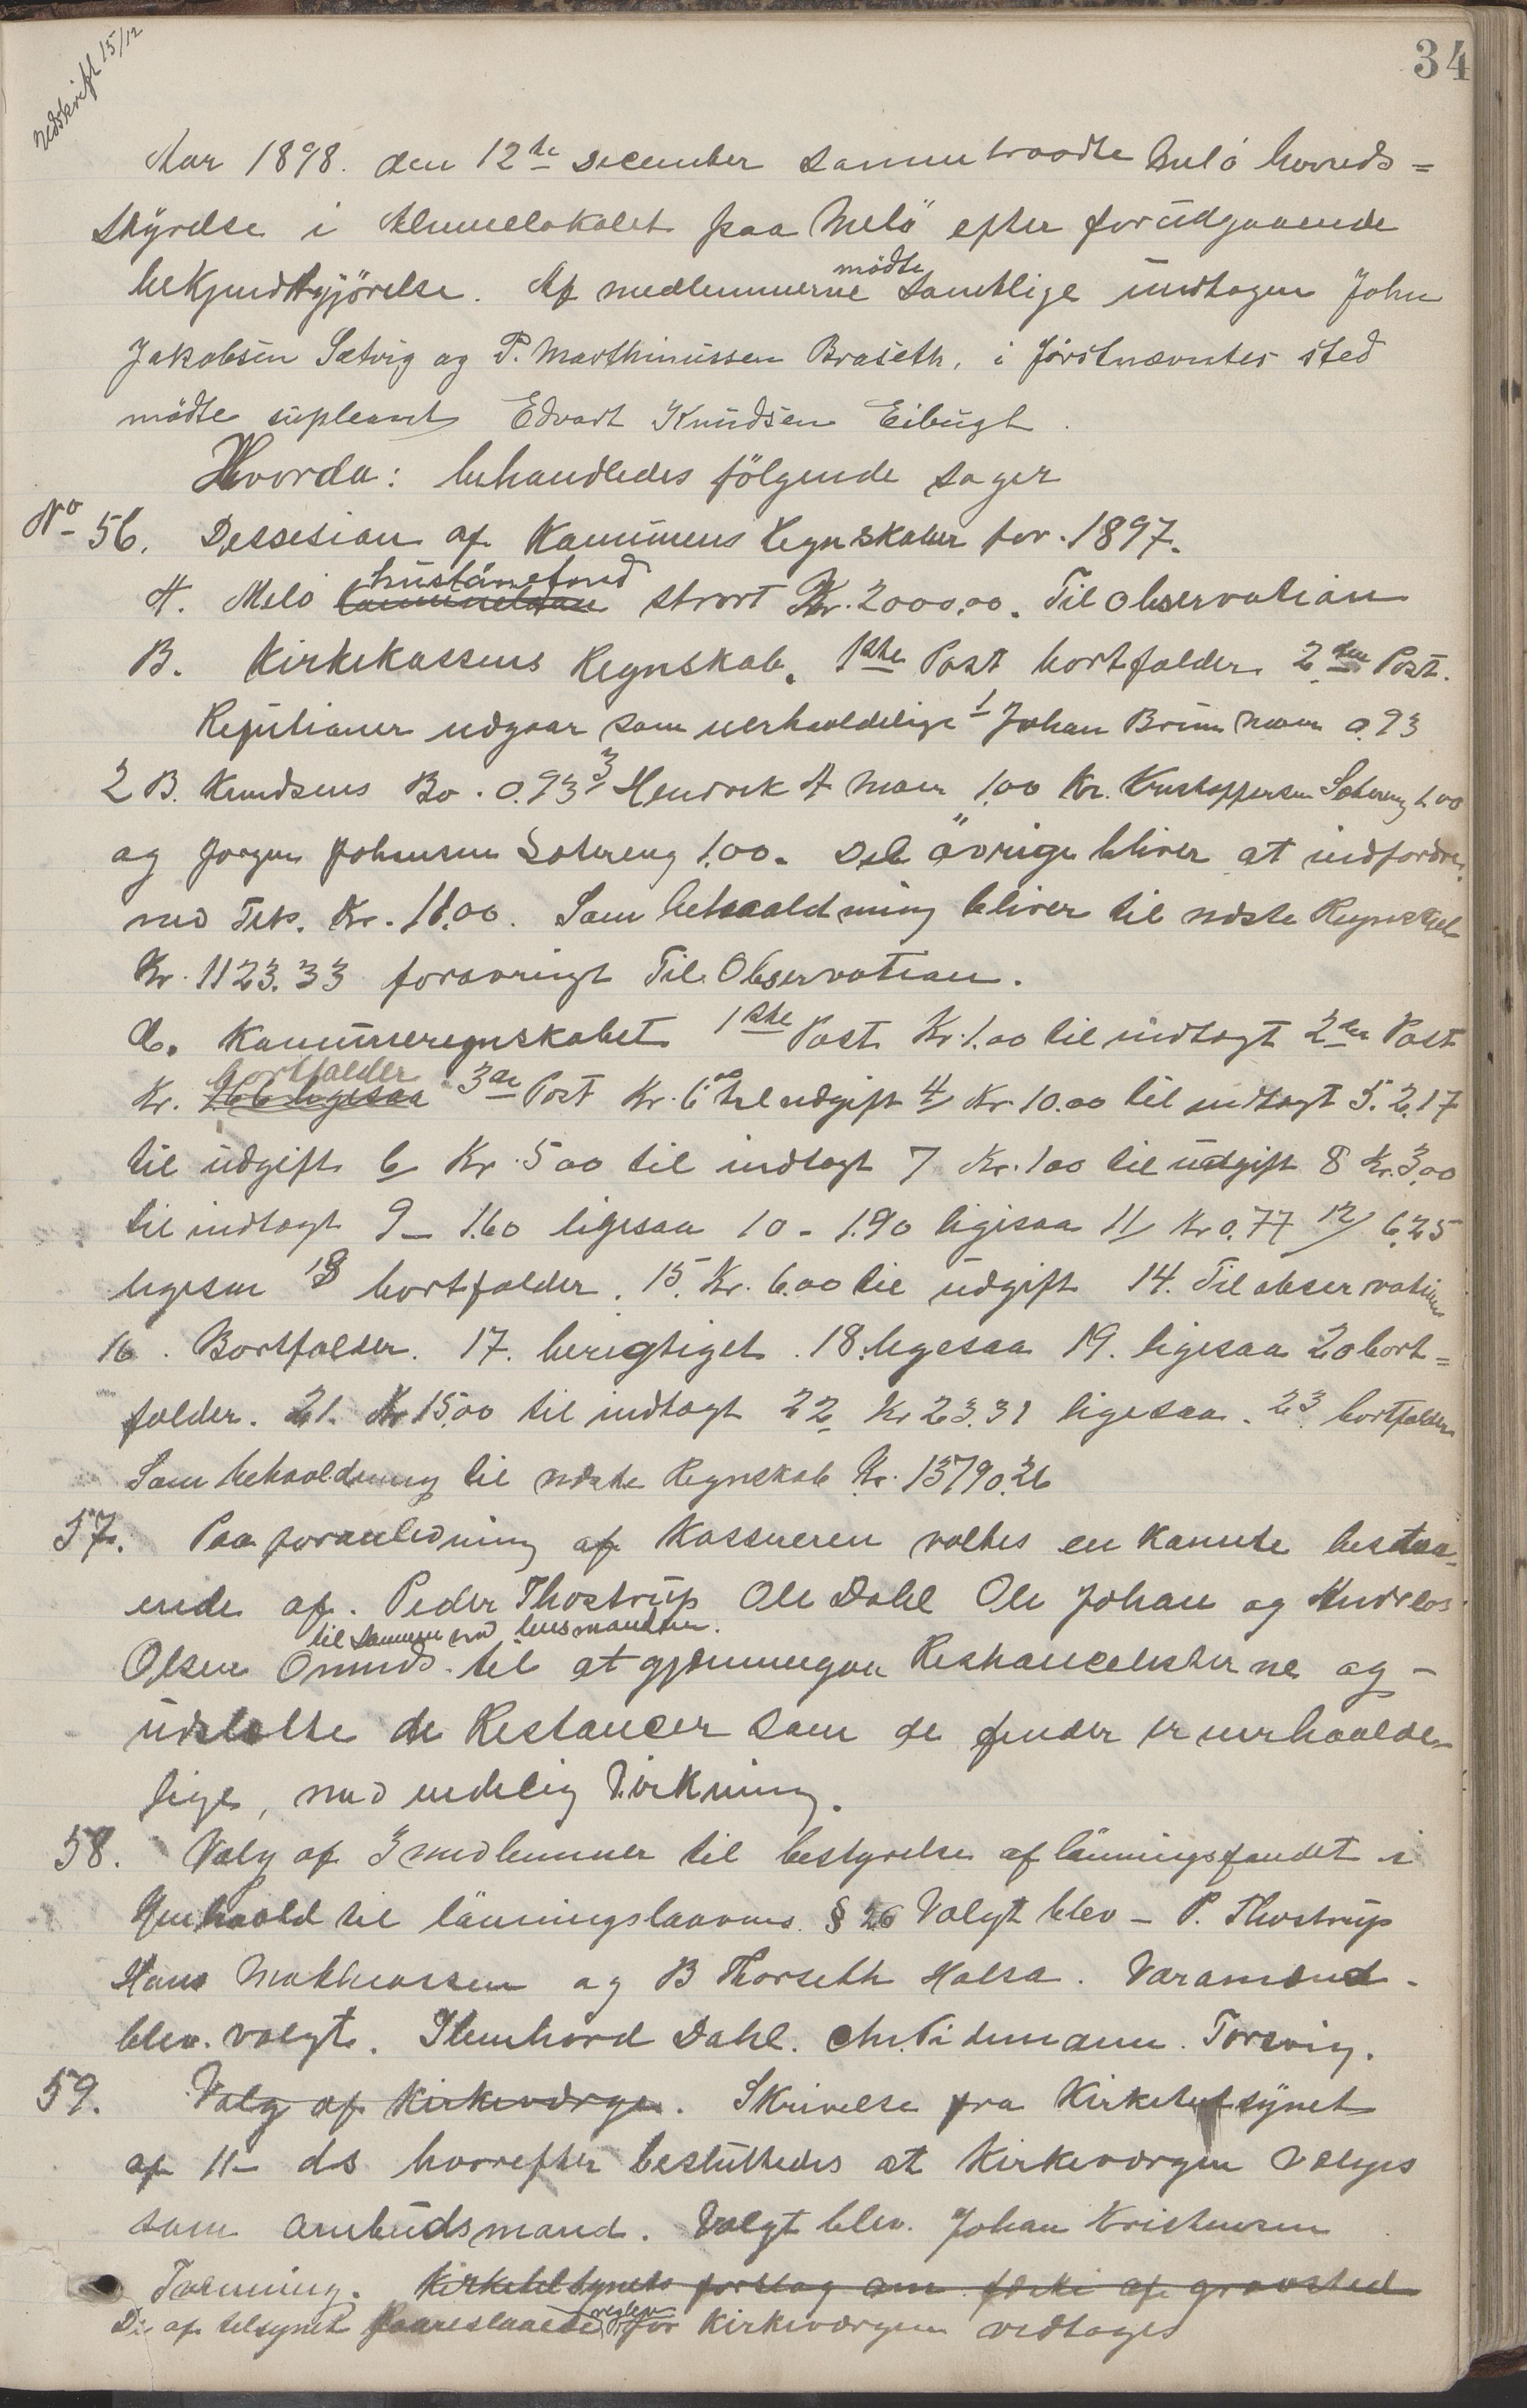 34
Udskrift 15/12
Aar 1898. den 12te December sammentraadte Melö herreds=
styrelse i Almuelokalet paa Melö efter forudgaaende
bekjendtgjörelse. Af medlemmerne mödte samtlige undtagen John
Jakobsen Sætvig og P. Marthinussen Braseth, i förstnævntes sted
mödte supleant Edvart Knudsen Eibugt.
Hvorda: behandledes fölgende sager
No 56. Dessesion af Kommunens Regnskaber for 1897.
A. Melö husbankfond stort Kr. 2000,00. Til Observation
B. Kirkekassens Regnskab. 1ste Post bortfalder 2den Post.
udgaar som uerholdelige 1 Johan Brun 0.93
2 B. Knudsens Bo. 0.93 3 Hendrik A 1,00 Kr. Kristoffersen Setereng 1.00
og Jörgen Johansen Setereng 1.00. Det övrige bliver at indfordre
med Kr. 11.00. Som behaaldning bliver til næste Regnskab
Kr. 1123.33 forövrigt Til Observation.
C. Kommuneregnskabet 1ste Post Kr. 1.00 til indtægt 2den Post
Kr. bortfalder 3de Post Kr. 6.00 til udgift 4/ Kr. 10.00 til indtægt 5. 2.17
til udgift 6 Kr. 5 00 til indtægt 7 Kr. 1 00 til udgift 8 Kr. 3,00
til indtægt 9 – 1.60 ligesaa 10 – 1.90 ligesaa 11/ Kr 0.77 12/ 6,25
ligesaa 13 bortfalder. 15. Kr. 6.00 til udgift 14. Til observation
16. Bortfalder. 17. berigtiget. 18. ligesaa 19. ligesaa 20 bort=
falder. 21. Kr 15,00 til indtægt 22 Kr 23.31 ligesaa. 23 bortfalder
Som behaoldning til næste Regnskab Kr. 13790.26
57. Paa foranledning af Kassereren valtes en Komite bestaa=
ende af. Peder Thostrup Ole Dahl Ole Johan og Andreas
Olsen Ornes til sammen med lensmanden. til at gjennemgaa Restancelisterne og –
udslette de Restancer som de finder er uerhaalde=
lige, med endelig Virkning.
58. Valg af 3 medlemmer til bestyrelse af läningsfondet i
Henhaold til läningslaavens § 26 Valgt blev – P. Thostrup
Hans Mathiassen og B Thorseth Halsa. Varamænd –
blev valgt. Dahl. Chr. Tidemann. Torsvig.
59. Valg af Kirkeværge. Skrivelse fra Kirketilsynet
af 11– ds hvorefter besluttedes at Kirkeværgen vælges
som ombudsmand. Valgt blev. Johan Kristensen
Tærning. Kirketilsynets forslag om af gravsted
De af tilsynet foareslaaede regler for Kirkeværgen vedtages